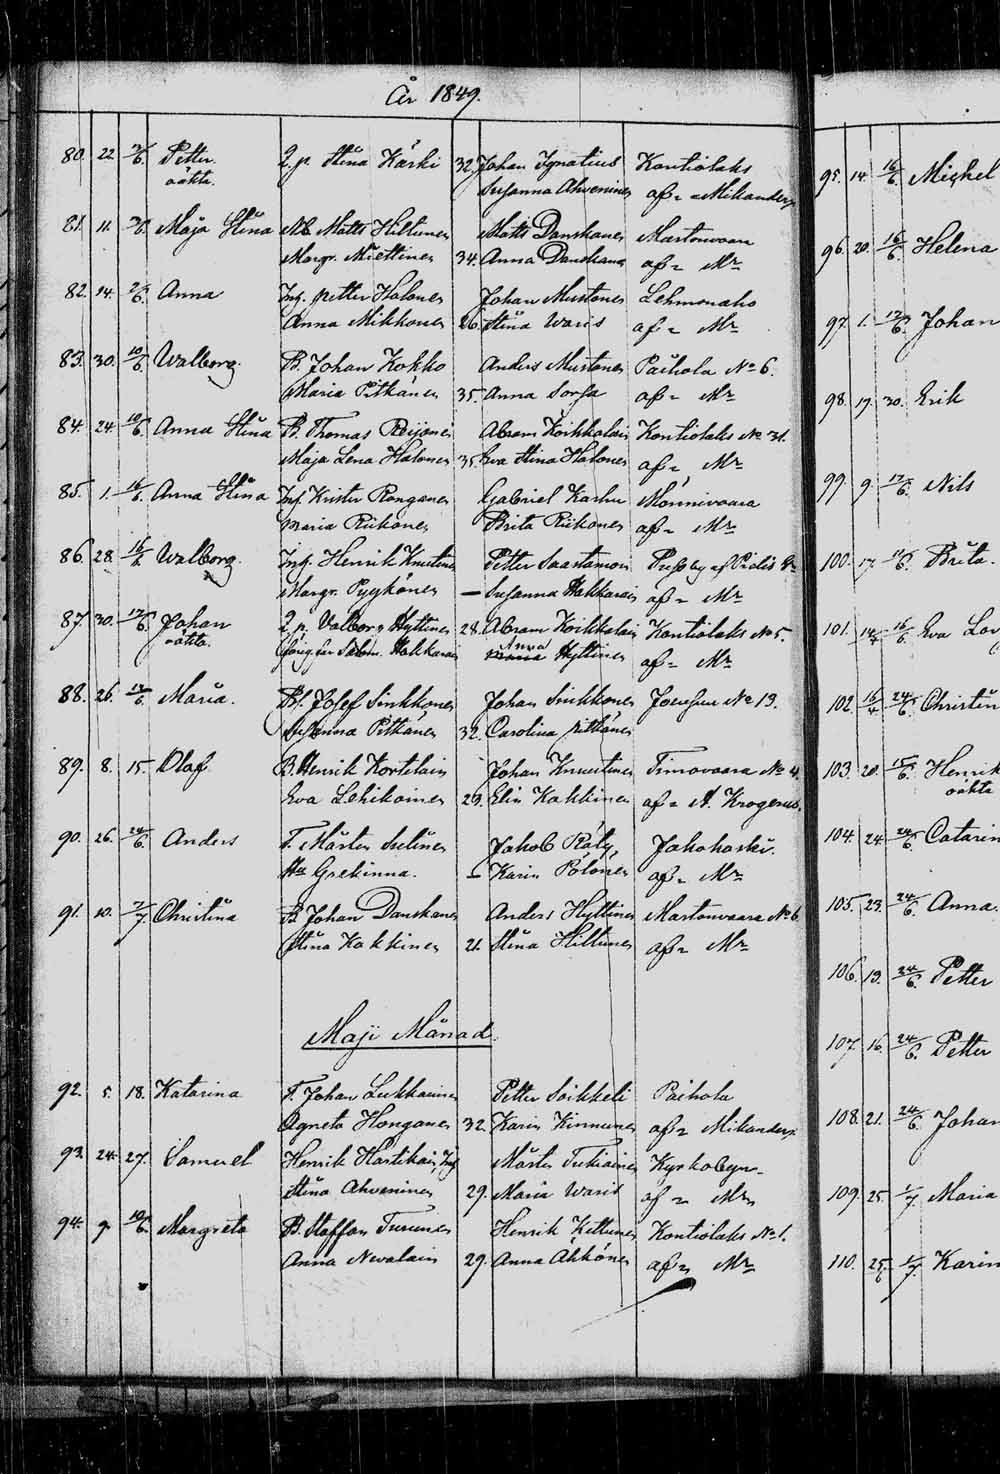 År 1849.
80. 22 3/6. Petter. Q. p. Stina Käski 32. Johan Ignatius Kontiolaks
oäkta. Susanna Ahveninen af = Mikander
81. 11. 3/6. Maja Stina Nb Matts Hiltunen Matts Danskanen Martonvaara
Margr. Miettinen 34. Anna Danskanen af = Mr
82. 14. 2/6. Anna Inh. Petter Halonen Johan Mustonen Lehmonaho
Anna Mikkonen 26. Stina Waris af = Mr
83. 30. 10/6. Walborg. B. Johan Kokko Anders Mustonen Paihola No 6.
Maria Pitkänen 35. Anna Sorsa af = Mr
84. 24. 10/6. Anna Stina B. Thomas Reijonen Abram Koikkalain Kontiolaks No 31.
Maja Lena Halonen 35. Eva Stina Halonen af = Mr
85. 1. 16/6. Anna Stina Inh. Krister Ronganen Gabriel Karhu Mönnivaara
Maria Riikonen Brita Riikonen af = Mr
86. 28. 16/6. Walborg. Inh. Henrik Knuutinen Petter Saastamoin
Margr. Pyykönen – Susanna Hakkarain af = Mr
87. 30. 17/6. Johan Q. p. Valborg Hyttinen 28. Abram Koikkalain Kontiolaks No 5.
oäkta. Hakkarain Anna Hyttinen af = Mr
88. 26. 17/6. Maria. Bs. Josef Sinkkonen Johan Sinkkonen Joensuu No 13.
Susanna Pitkänen 32. Carolina Pitkänen
89. 8. 15. Olof B. Henrik Kortelain Johan Knuutinen Timovaara No 4.
Eva Lehikoinen 29. Elin Kakkinen af = A. Krogerus.
90. 26. 24/6. Anders T. Mårten Jakob Räty, Jakokoski.
Hu Grekinna. – Karin Polonen af = Mr
91. 10. 7/7. Christina B. Johan Danskanen Anders Hyttinen Martonvaara No 6
Stina Kakkinen 21. Stina Hiltunen af = Mr
Maji Månad.
92. 5. 18. Katarina T. Johan Lukkarinen Petter Soikkeli Paihola
Agneta Honganen 32. Karin Kinnunen af = Mikander
93. 24. 27. Samuel Henrik Hartikain, Inh Mårten Turkiainen Kyrkobyn
Stina Ahveninen 29. Maria Waris af = Mr
94. 9. 10/6. Margreta B. Staffan Turunen Henrik Kettunen Kontiolaks No 1.
Anna Nevalain 29. Anna Ahkönen af = Mr
95. 14. 16/6 Michel
96. 20. 16/6. Helena
97. 1. 17/6. Johan
98. 19. 30. Erik
99. 9. 17/6. Nils
100. 17. 17/6. Brita.
101. 14/4 16/6. Eva Lov
102. 16/4 24/6. Christin
103. 20. 15/6. Henrik
oäkta
104. 24. 24/6. Catarin
105. 23. 24/6. Anna.
106. 19. 24/6. Petter
107. 16. 24/6. Petter
108. 21. 24/6. Johan
109. 25. 1/7. Maria
110. 25/6. 1/7. Karin